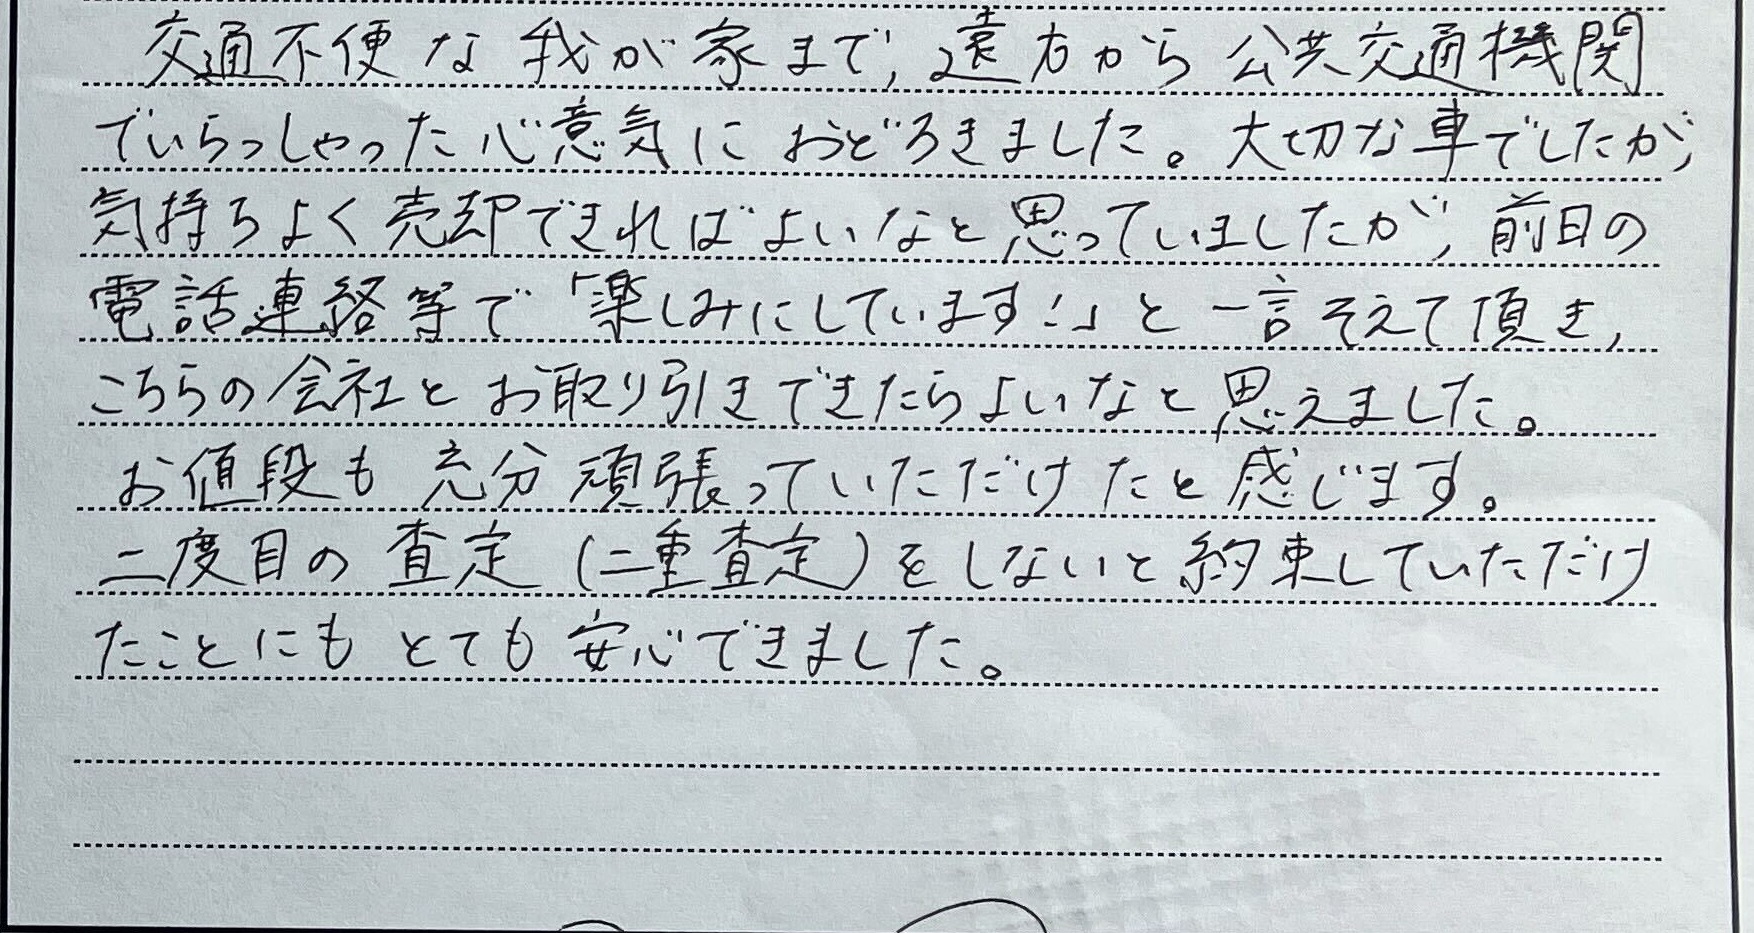 交通不便な我が家まで、遠方から公共交通機関
でいらっしゃった心意気におどろきました。大切な車でしたが、
気持ちよく売却できればよいなと思っていましたが、前日の
電話連絡等で「楽しみにしています!」と一言そえて頂き、
こちらの会社とお取り引きできたらよいなと思えました。
お値段も充分頑張っていただけたと感じます。
二度目の査定(二重査定)をしないと約束していただけ
たことにもとても安心できました。